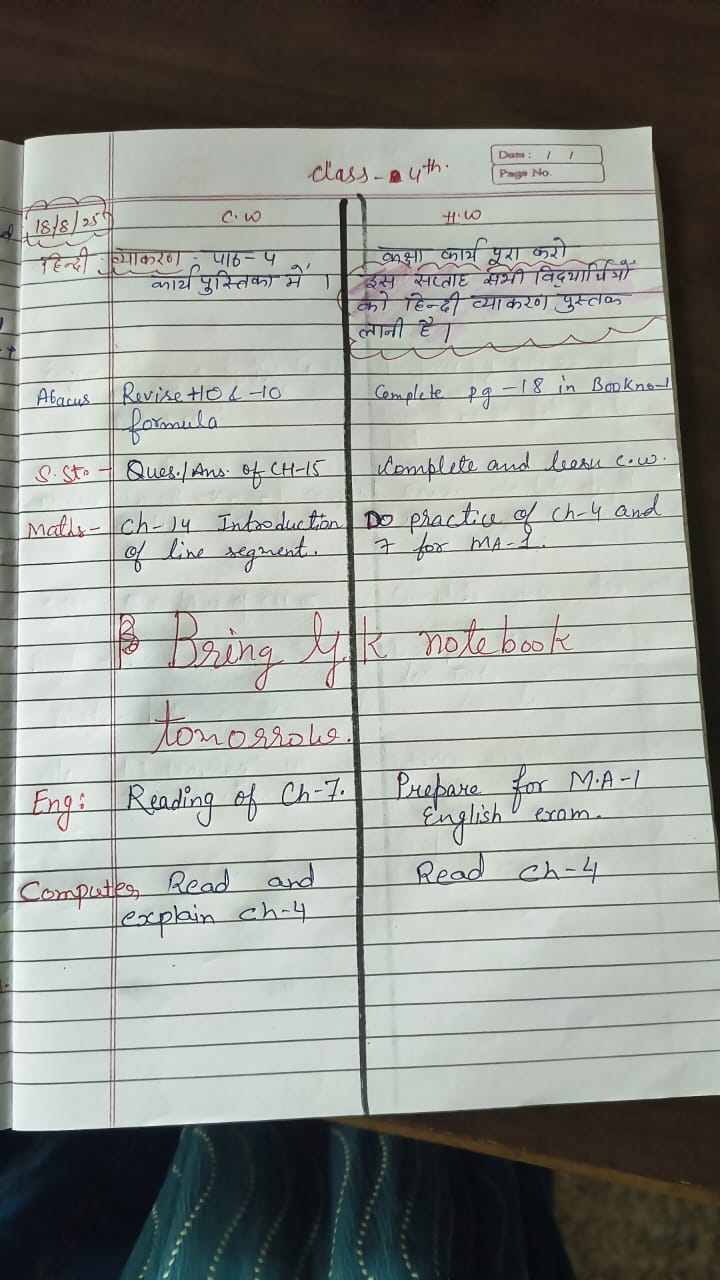 Class - 4th.
Date : / /
Page No.
18/8/25
C.W
H.W
हिन्दी : व्याकरण - पाठ- 4
कार्य पुस्तिका में ।
कक्षा कार्य पूरा करो
इस सप्ताह सभी विद्यार्थियों
को हिन्दी व्याकरण पुस्तक
लानी है ।
Abacus Revise +10 & -10
formula
Complete pg -18 in Book no-1
S.St. - Ques./Ans. of CH-15
Complete and learn c.w.
Maths - Ch-14 Introduction
of line segment.
Do practice of Ch-4 and
7 for MA-1.
Bring G.k notebook
tomorrow.
Eng: Reading of Ch-7.
Prepare for M.A-1
English exam.
Computer Read and
explain ch-4
Read ch-4